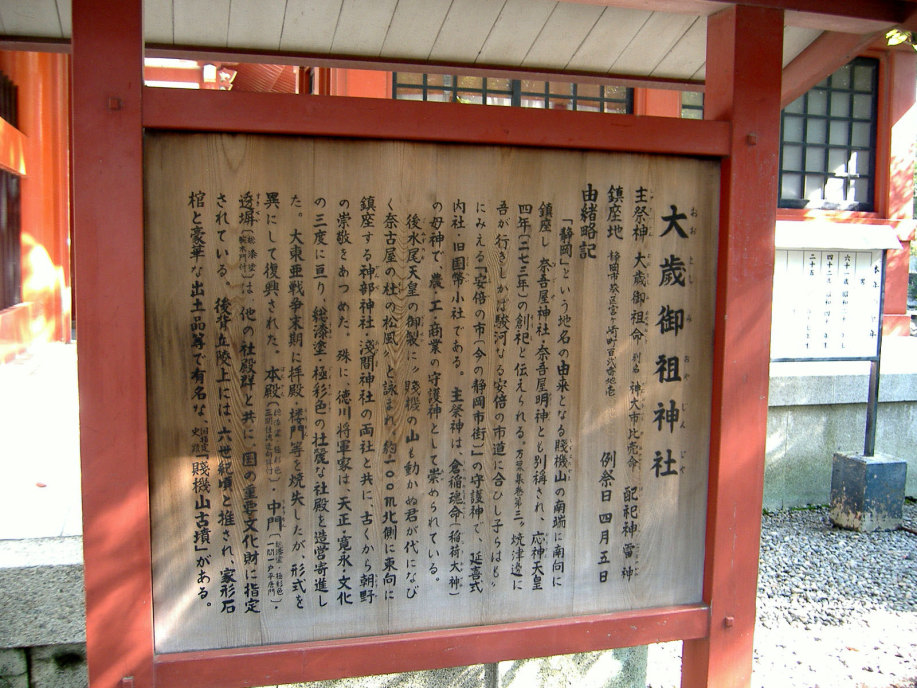 大歳御祖神社
おおとしみおやじんじゃ
主祭神 大歳御祖命 別名 神大市比売命 配祀神 雷神
鎮座地 静岡市 例祭日 四月五日
由緒略記
「静岡」という地名の由来となる賤機山の南端に南向に
鎮座し、奈吾屋神社・奈吾屋明神とも別称され、応神天皇
四年(二七三年)の創祀と伝えられる。万葉集巻第三、焼津邊に
吾が行きしかば駿河なる安倍の市道に合ひし子らはも。
にみえる「安倍の市(今の静岡市街)」の守護神で、延喜式
内社・旧国幣小社である。主祭神は、倉稲魂命(稲荷大神)
の母神で、農・工・商業の守護神として崇められている。
後水尾天皇の御製に〝賤機の山も動かぬ君が代になび
く奈古屋の杜の松風〟と詠まれ、約一〇〇米北側に東向に
鎮座する神部神社・淺間神社の両社と共に、古くから朝野
の崇敬をあつめた。殊に、徳川将軍家は天正・寛永・文化
の三度に亘り、総漆塗・極彩色の壮麗な社殿を造営寄進し
た。大東亜戦争末期に拝殿・楼門等を焼失したが、形式を
異にして復興された。本殿・中門
透塀は、他の社殿群と共に、国の重要文化財に指定
されている。後背丘陵上には、六世紀頃と推され、家形石
棺と豪華な出土品等で有名な、国指定史跡「賤機山古墳」がある。